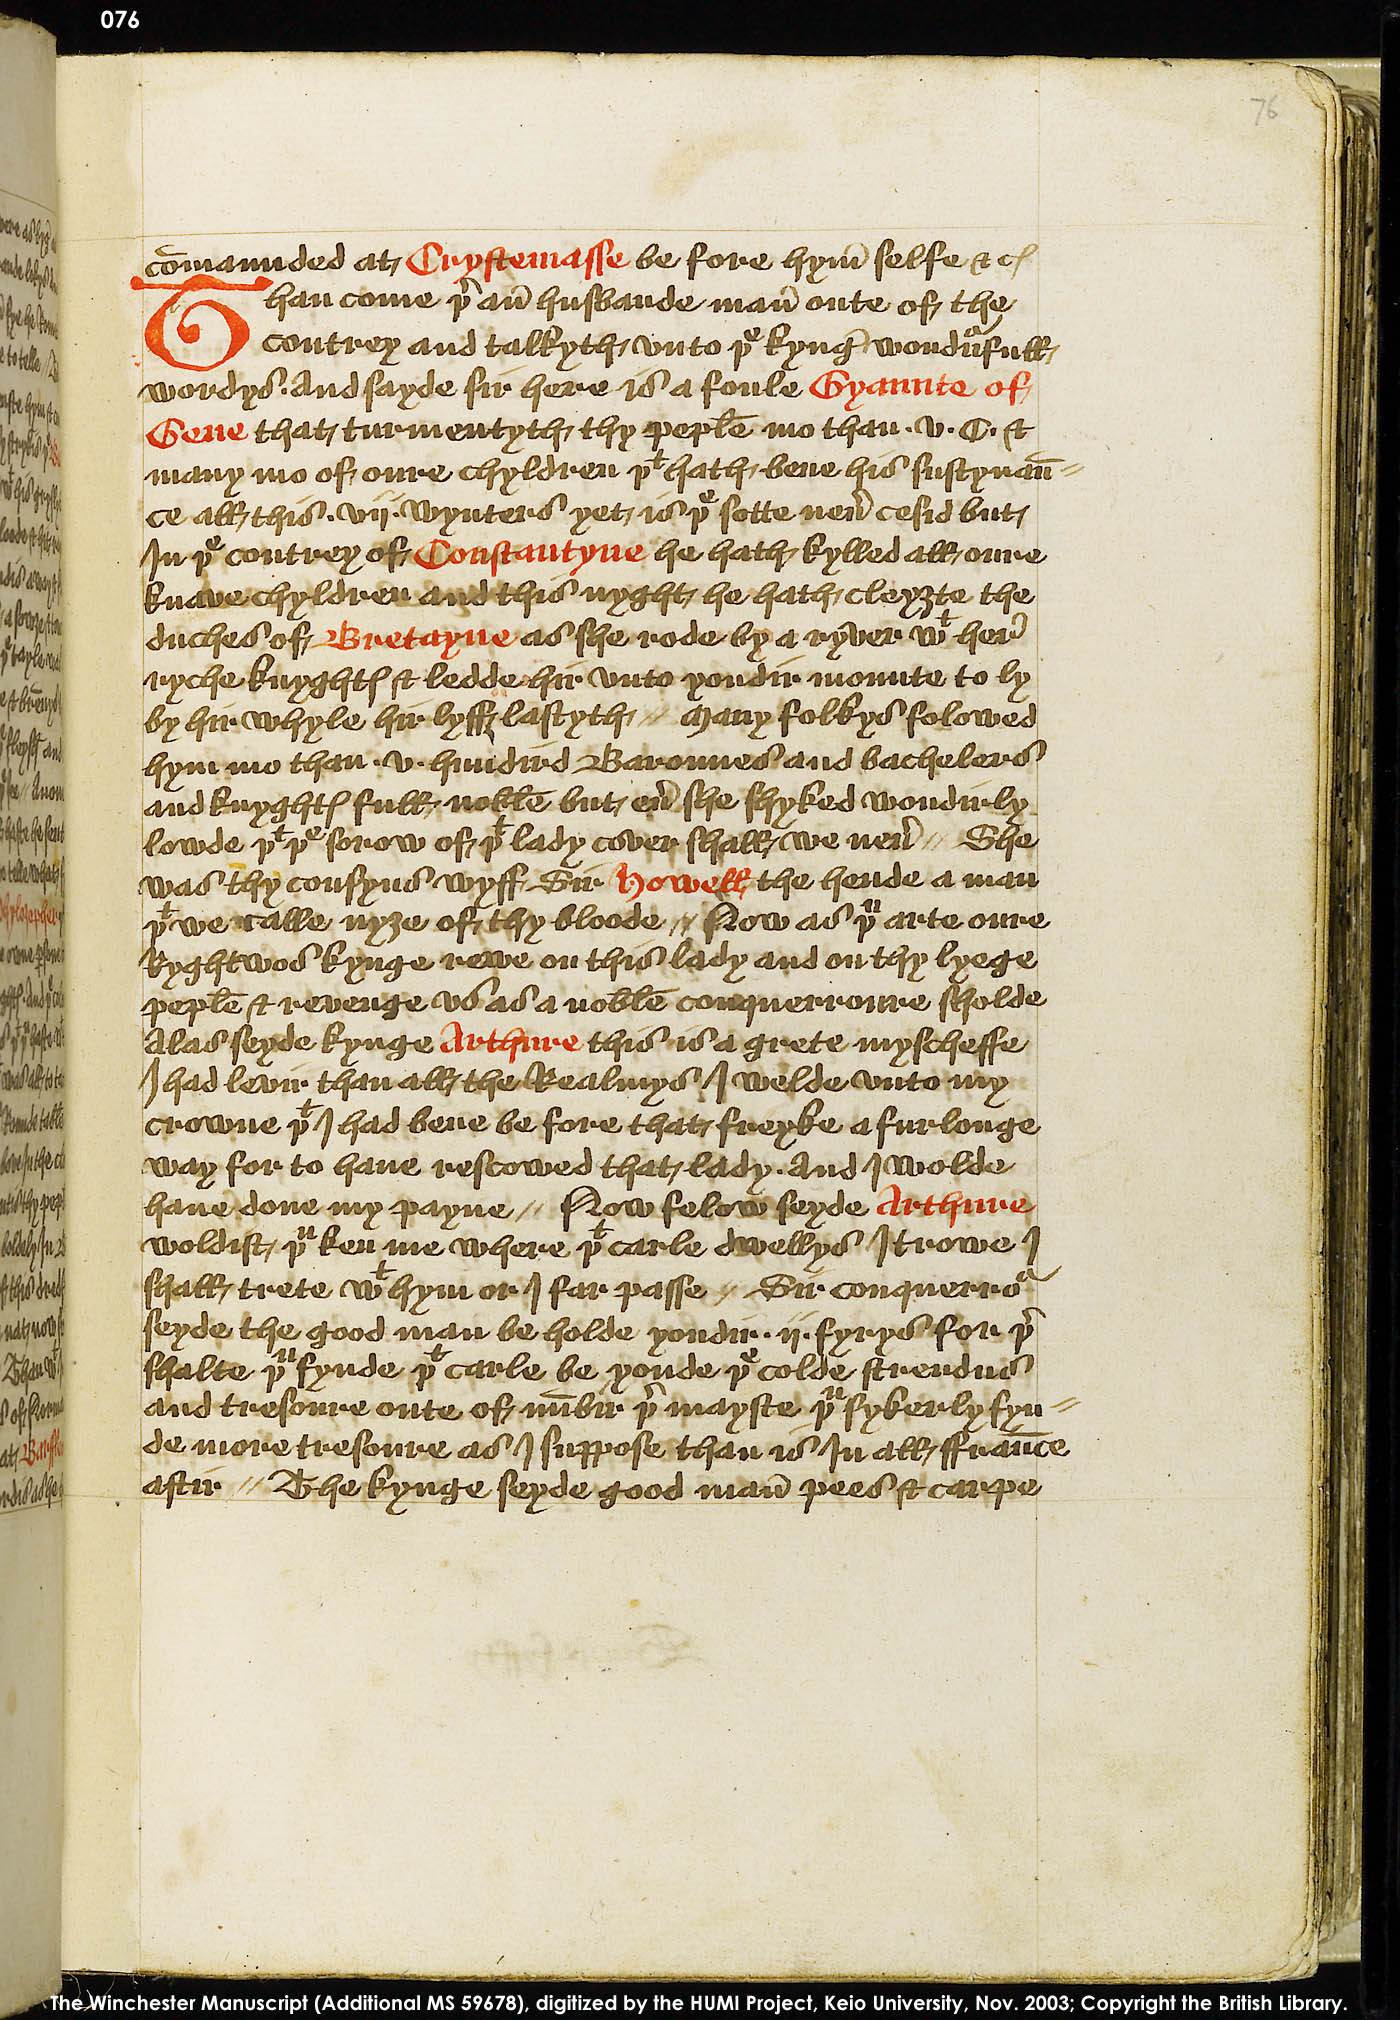 076
76
co̅maunded at Crystemasse be fore hym̅ selfe & cͭ
Than come þͬ an̅ husbande man̅ oute of the
contrey and talkyth vnto þͤ kyng̅ wondᵘfull
wordys. And sayde sir here is a foule Gyaunte of
Gene that turmentyth thy peple̅ mo than .v. C. &
many mo of oure chyldren þͭ hath bene his sustynau̅=
ce all this .vij. wynters yet is þͤ sotte neu̅ cesid but
In þͤ contrey of Constantyne he hath kylled all oure
knave chyldren and this nyght he hath cleyȝte the
duches of Bretayne as she rode by a ryver wͭ her̅
ryche knyghtꝭ & ledde hir vnto yondir mounte to ly
by hir whyle hir lyff lastyth // Many folkys folowed
hym mo than .v. hundird Barounes and bachelers
and knyghtꝭ full noble̅ but eu̅ she shyked wondirly
lowde þͭ þͤ sorow of þͭ lady cover shall we neu̅ // She
was thy cousyns wyff Sir Howell the hende a man
þͭ we calle nyȝe of thy bloode // Now as þᵘ arte oure
Ryghtwos kynge rewe on this lady and on thy lyege
peple̅ & revenge vs as a noble̅ conquerroure sholde
Alas seyde kynge Arthure this is a grete myscheffe
I had levir than all the Realmys I welde vnto my
crowne þͭ I had bene be fore that freyke a furlonge
way for to haue rescowed that lady. And I wolde
haue done my payne // Now felow seyde Arthure
woldist þᵘ ken me where þͭ carle dwellys I trowe I
shall trete wͭ hym or I far passe // Sir conquerroͬ
seyde the good man be holde yondir .ij. fyrys for þͬ
shalte þᵘ fynde þͭ carle be yonde þͤ colde strendus
and tresoure oute of nu̅bir þͬ mayste þᵘ sykerly fyn=
de more tresoure as I suppose than is In all ffrau̅ce
aftir // The kynge seyde good man̅ pees & carpe
The Winchester Manuscript (Additional MS 59678), digitized by the HUMI Project, Keio University, Nov. 2003; Copyright the British Library.